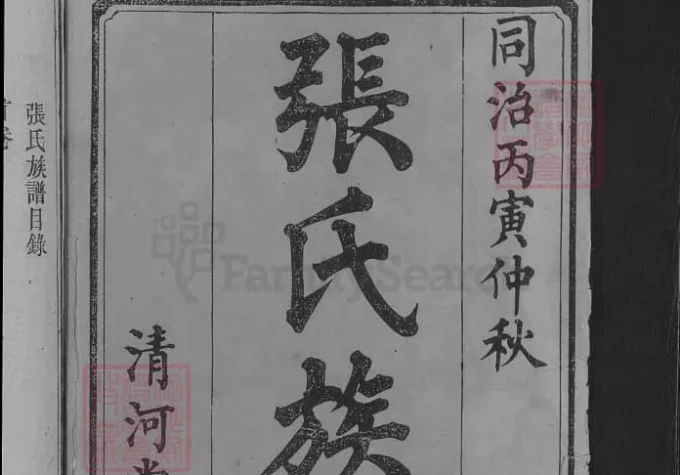 同治丙寅仲秋
張氏族
清河
張氏族譜目錄
FamilySearch